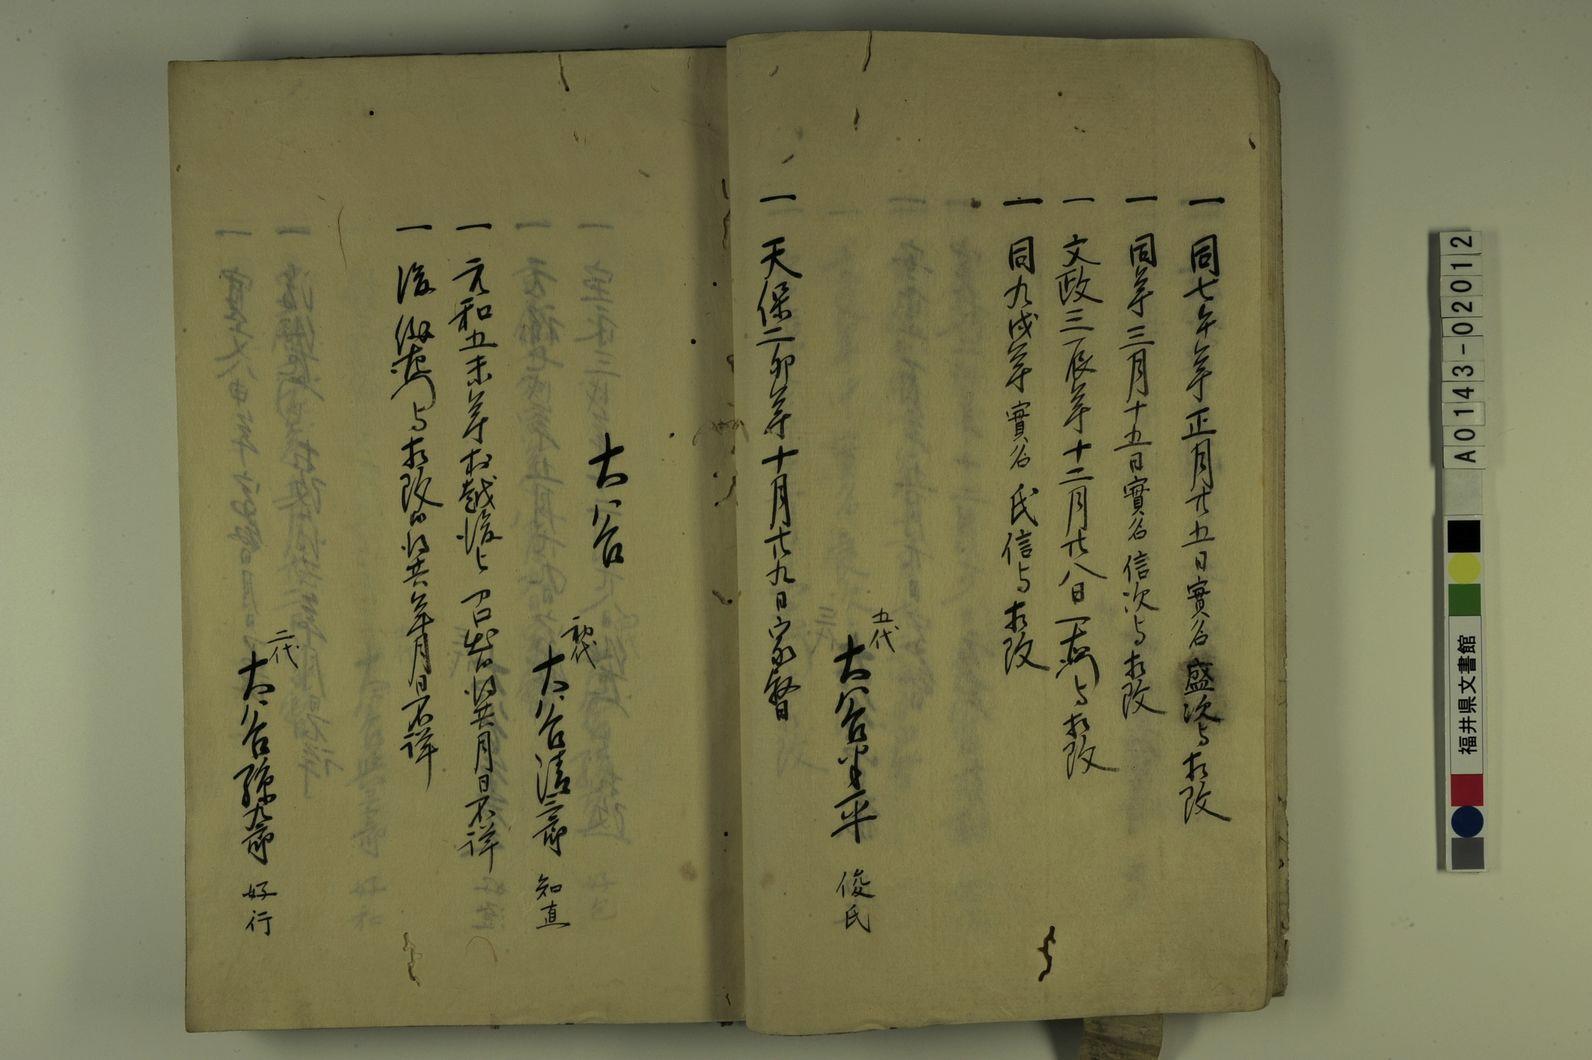 一 同七午年正月廿五日實名盛次与相改
一 同年三月十五日實名信次与相改
一 文政三辰年十二月廿八日一 与相改
一 同九戌年實名氏信与相改
五代
大谷 平 俊氏
一 天保二卯年十月廿九日家督
大谷
初代
大谷清三郎 知直
一 元和五未年於越後被 召出歟其月日不詳
一 後 与相改歟其年月日不詳
二代
大谷孫九郎 好行
A0143-02012
福井県文書館